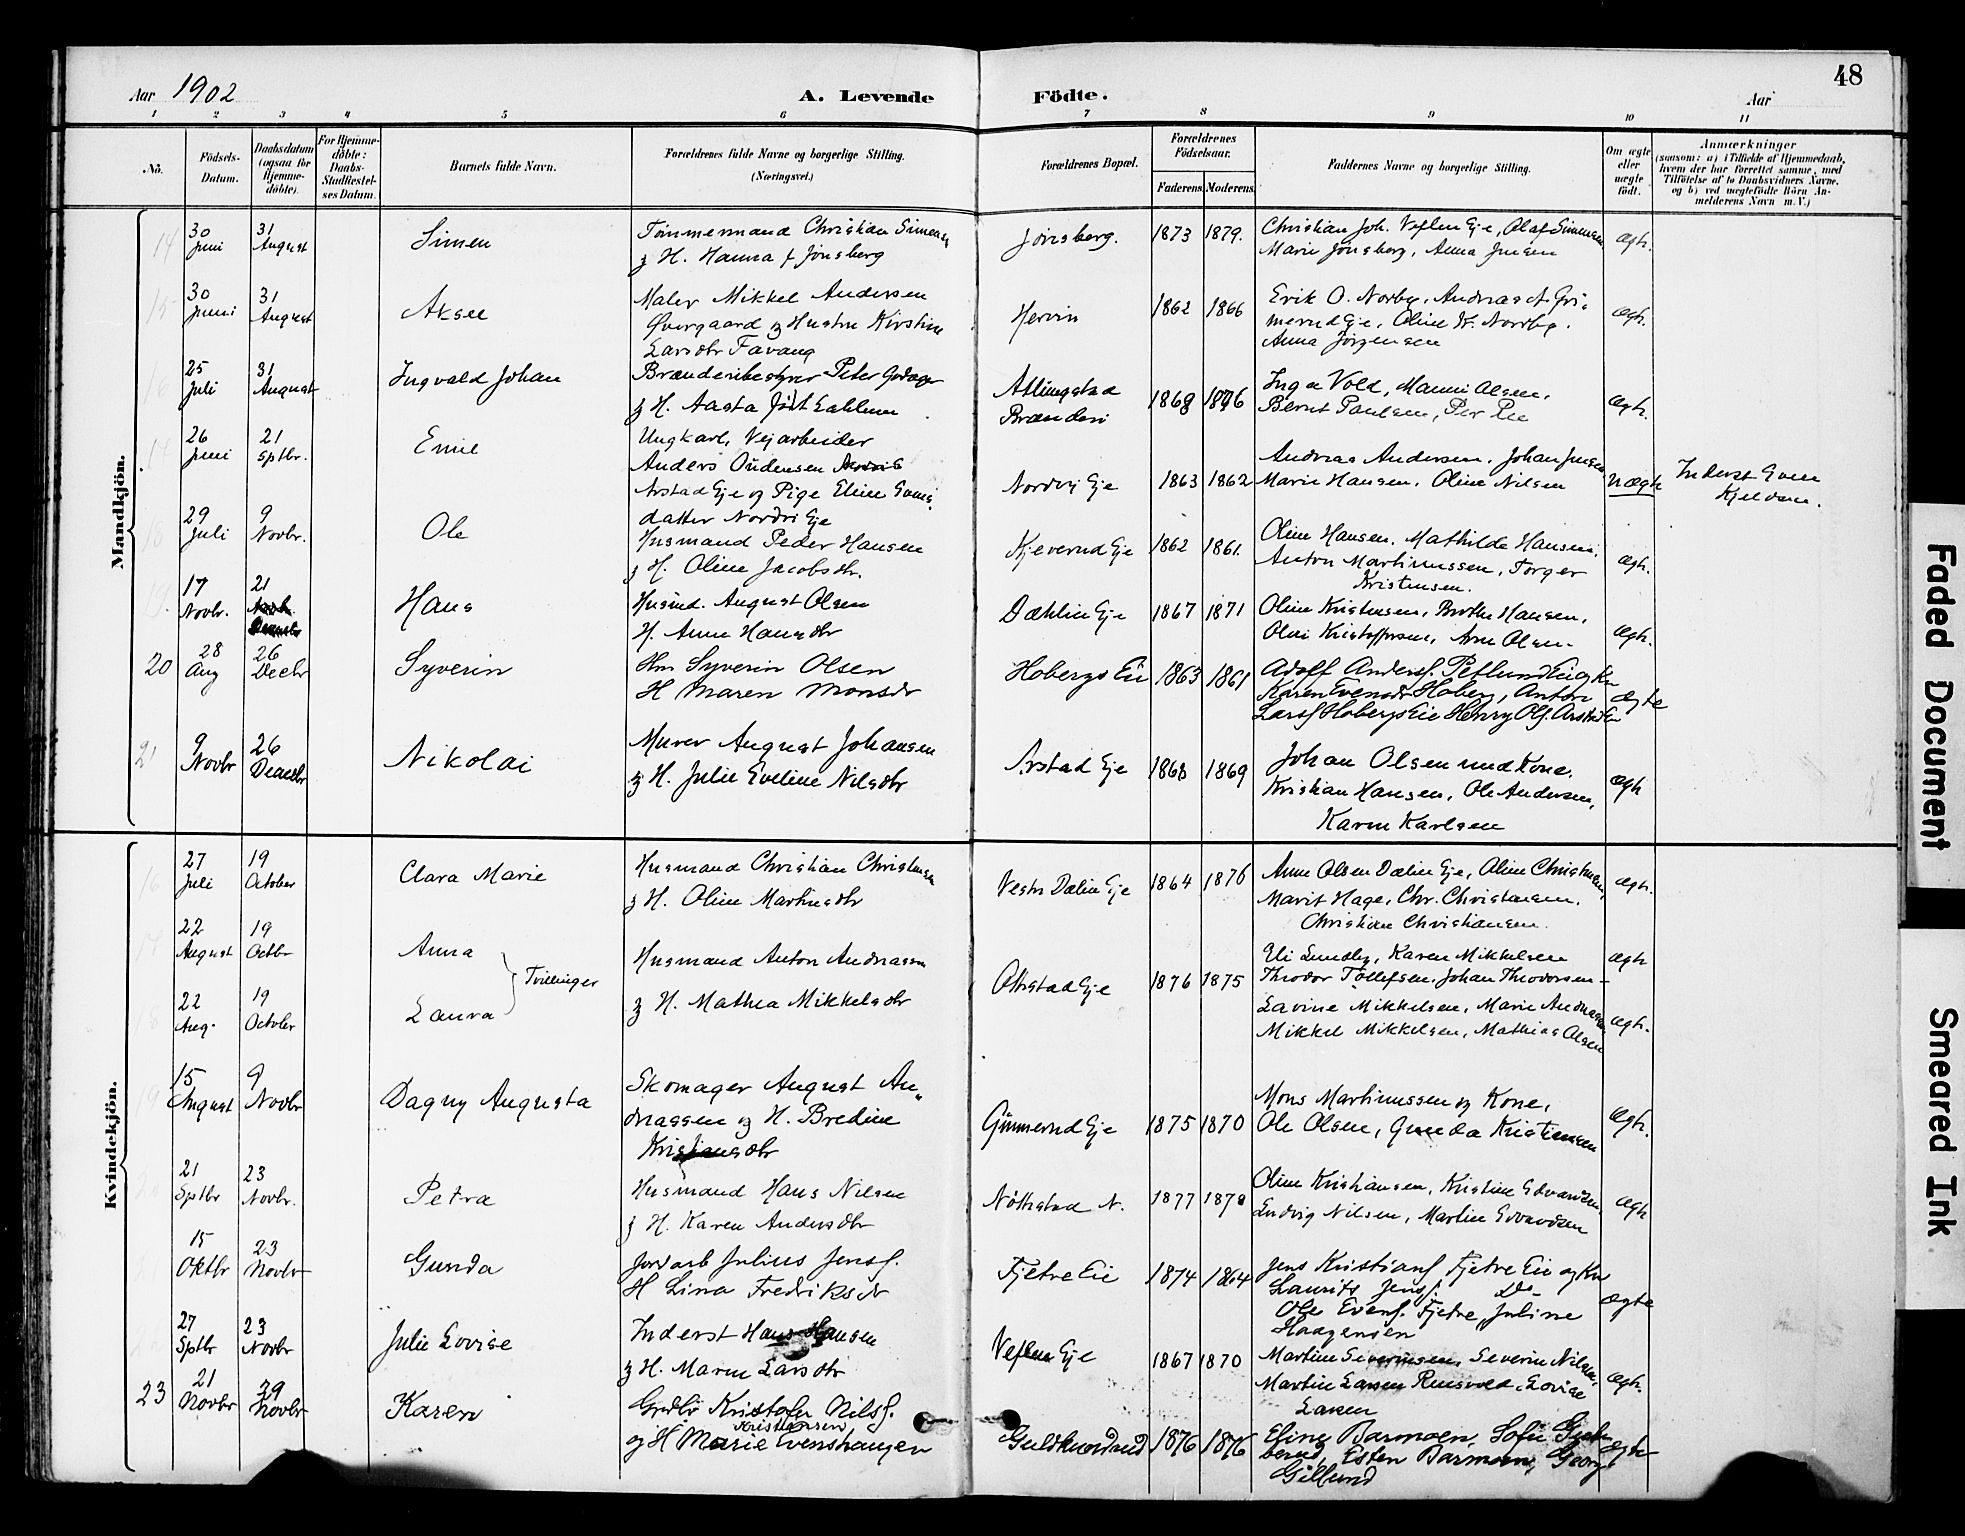 48
Aar 1902
A. Levende
Födte.
Aar
1 2 3 4 5 6 7 8 9 10 11
No.
Födsels-Datum.
Daabsdatum (ogsaa for Hjemme-döbte).
For Hjemme-döbte: Daabs-Stadfæstel-ses Datum.
Barnets fulde Navn.
Forældrenes fulde Navne og borgerlige Stilling. (Næringsvei.)
Forældrenes Bopæl.
Forældrenes Födselsaar.
Faderens. Moderens.
Faddernes Navne og borgerlige Stilling.
Om ægte eller uægte födt.
Anmærkninger
(saasom: a) i Tilfælde af Hjemmedaab, hvem der har forrettet samme, med Tilföielse af to Daabsvidners Navne, og b) ved uægtefödte Börn An-melderens Navn m. V.)
Mandkjön.
14 30 Juni 31 August Simen
Tømmermand Christian Simensen
& H. Hanna f Jønsberg
Jønsberg. 1873 1879.
Christian Joh. Vejlen Eje, Olaf Simensen
Marie Jønsberg, Anna Jensen
ægt.
15 30 Juni 31 August Aksel
Maler Mikkel Andersen
Øvergaard og Hustru Kirstine
Larsdtr Favang
1862 1866
Erik O. Norby, Andreas A. Gri-
merud Eje, Oline K. Nordby.
Anna Jørgensen
ægt.
16 25 Juli 31 August Ingvald Johan
Brænderibestyrer Peter
& H. Aasta
Brænderi 1868 1876
Inga Vold, Manni Olsen,
Bernt Paulsen, Per
ægt.
26 Juni 21 Sptbr. Emil
Ungkarl, Vejarbeider
Anders Oudensen
Arstad Eje og Pige Eline
datter Nordvi Eje
Nordvi Eje 1863 1862
Andreas Andersen, Johan Jensen
Marie Hansen, Oline Nilsen
uægt
Inderst Even
Kjeldsen.
18 29 Juli 9 Novbr. Ole
Husmand Peder Hansen
& H. Oline Jacobsdtr.
Kjeverud Eje 1862 1861.
Oline Hansen, Mathilde Hansen,
Anton Martinussen, Torger
Kristensen.
ægt.
19. 17 Novbr. 21 Hans
Husmd. August Olsen
H. Anne Hansdtr
Dæhlin Eje 1867 1871
Oline Kristensen, Hansen,
Olai Kristoffersen, Olsen.
ægt.
20 28 Aug 26 Decbr Syverin
Hm Syverin Olsen
H Maren Monsdr
Hobergs Eie 1863 1861
Adolf Anders. Petlund Eie og Kn
Karen Evensdr Hoberg, Anton
Lars. Hobergs Eie Henry Ols. Arstad Ei
ægte
21 9 Novbr 26 Decembr Nikolai
Murer August Johansen
& H. Julie Eveline Nilsdtr
Arstad Eje 1868 1869
Johan Olsen und Kone,
Kristian Hansen, Ole Andersen,
Karen Karlsen
ægt
Kvindekjön.
16 27 Juli 19 October Clara Marie
Husmand Christian Christensen
& H. Oline Martinsdtr
Vestre Dælin Eje 1864 1876
Anne Olsen Dælin Eje, Oline Christensen,
Marit Hage, Chr. Christiansen,
Christian Christiansen.
ægt.
22 August 19 Octbr Anna
Tvillinger
Husmand Anton Andreassen
& H. Mathea Mikkelsdtr
Ottestad Eje 1876 1875
Eli Lundby, Karen Mikkelsen
Theodor Tollefsen, Johan Theodorsen -
ægt
18 22 Aug. 19 Octobr Laura
Lavine Mikkelsen, Marie Andreassen
Mikkel Mikkelsen, Mathias Olsen
ægt.
19 15 August 9 Novbr Dagny Augusta
Skomager August An-
dreassen og H. Bredine
Kristiansdtr
Grimmerud Eje 1875 1870
Mons Martinussen og Kone,
Ole Olsen, Gunda Kristiansen
ægt.
21 Sptbr 23 Novbr. Petra
Husmand Hans Nilsen
& H. Karen Andersdtr
Nøttestad N. 1877 1878
Oline Kristiansen, Kristine Edvardsen,
Ludvig Nilsen, Martin Edvardsen
ægt
15 Oktbr 23 Novbr Gunda
Jordarb Julius Jens.
H Lina Fredriksdr
Fjetre Eie 1874 1864
Jens Kristians. Fjetre Eie og Kn
Laurits Jens. Do
Ole Evens. Fjetre, Juline
Haagensen
ægte
27 Sptbr 23 Novbr Julie Lovise
Inderst Hans Hansen
& H. Maren Larsdtr
Vejlen Eje 1867 1870
Martine Severinsen, Severin Nilsen,
Martin Larsen Rensvold, Lovise
Larsen
ægt.
23 21 Novbr 29 Novbr Karen
Grdbr Kristofer Nils.
Kristiansen
og H Marie Evenshaugen
Guldknordrud 1876 1876
Eline Barmoen, Sofie
berud, Esten Barmoen, Georg
Gillund
ægte
Faded Document
Smeared Ink